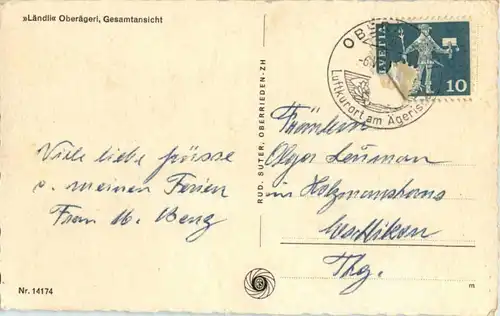 »Ländli« Oberägeri, Gesamtansicht
Viele liebe Grüsse
a. meinen Ferien
Frau M. Benz
Nr. 14174
RUD. SUTER, OBERRIEDEN-ZH
OB
-6.
Luftkurort am Ägeris
HELVETIA
10
Fräulein
Olga Leuman
im Holzmannshaus
Eschlikon
Thg.
m